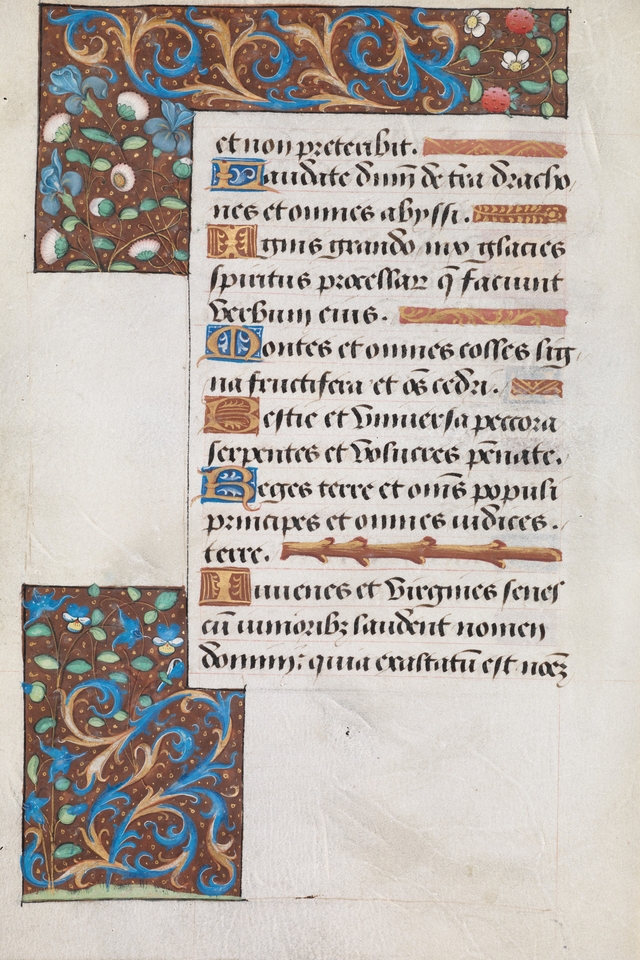 et non preteribit.
Laudate dnm̄ de trā draco
nes et omnes abyssi.
Ignis grando nix glacies
spiritus procellarꝝ q̄ faciunt
verbum eius.
Montes et omnes colles lig
na fructifera et oēs cedri.
Bestie et vniuersa peccora
serpentes et volucres pēnate.
Reges terre et omēs populi
principes et omnes iudices
terre.
Iuuenes et virgines senes
cū iunioribꝫ laudent nomen
domini: quia exaltatū est noēꝫ